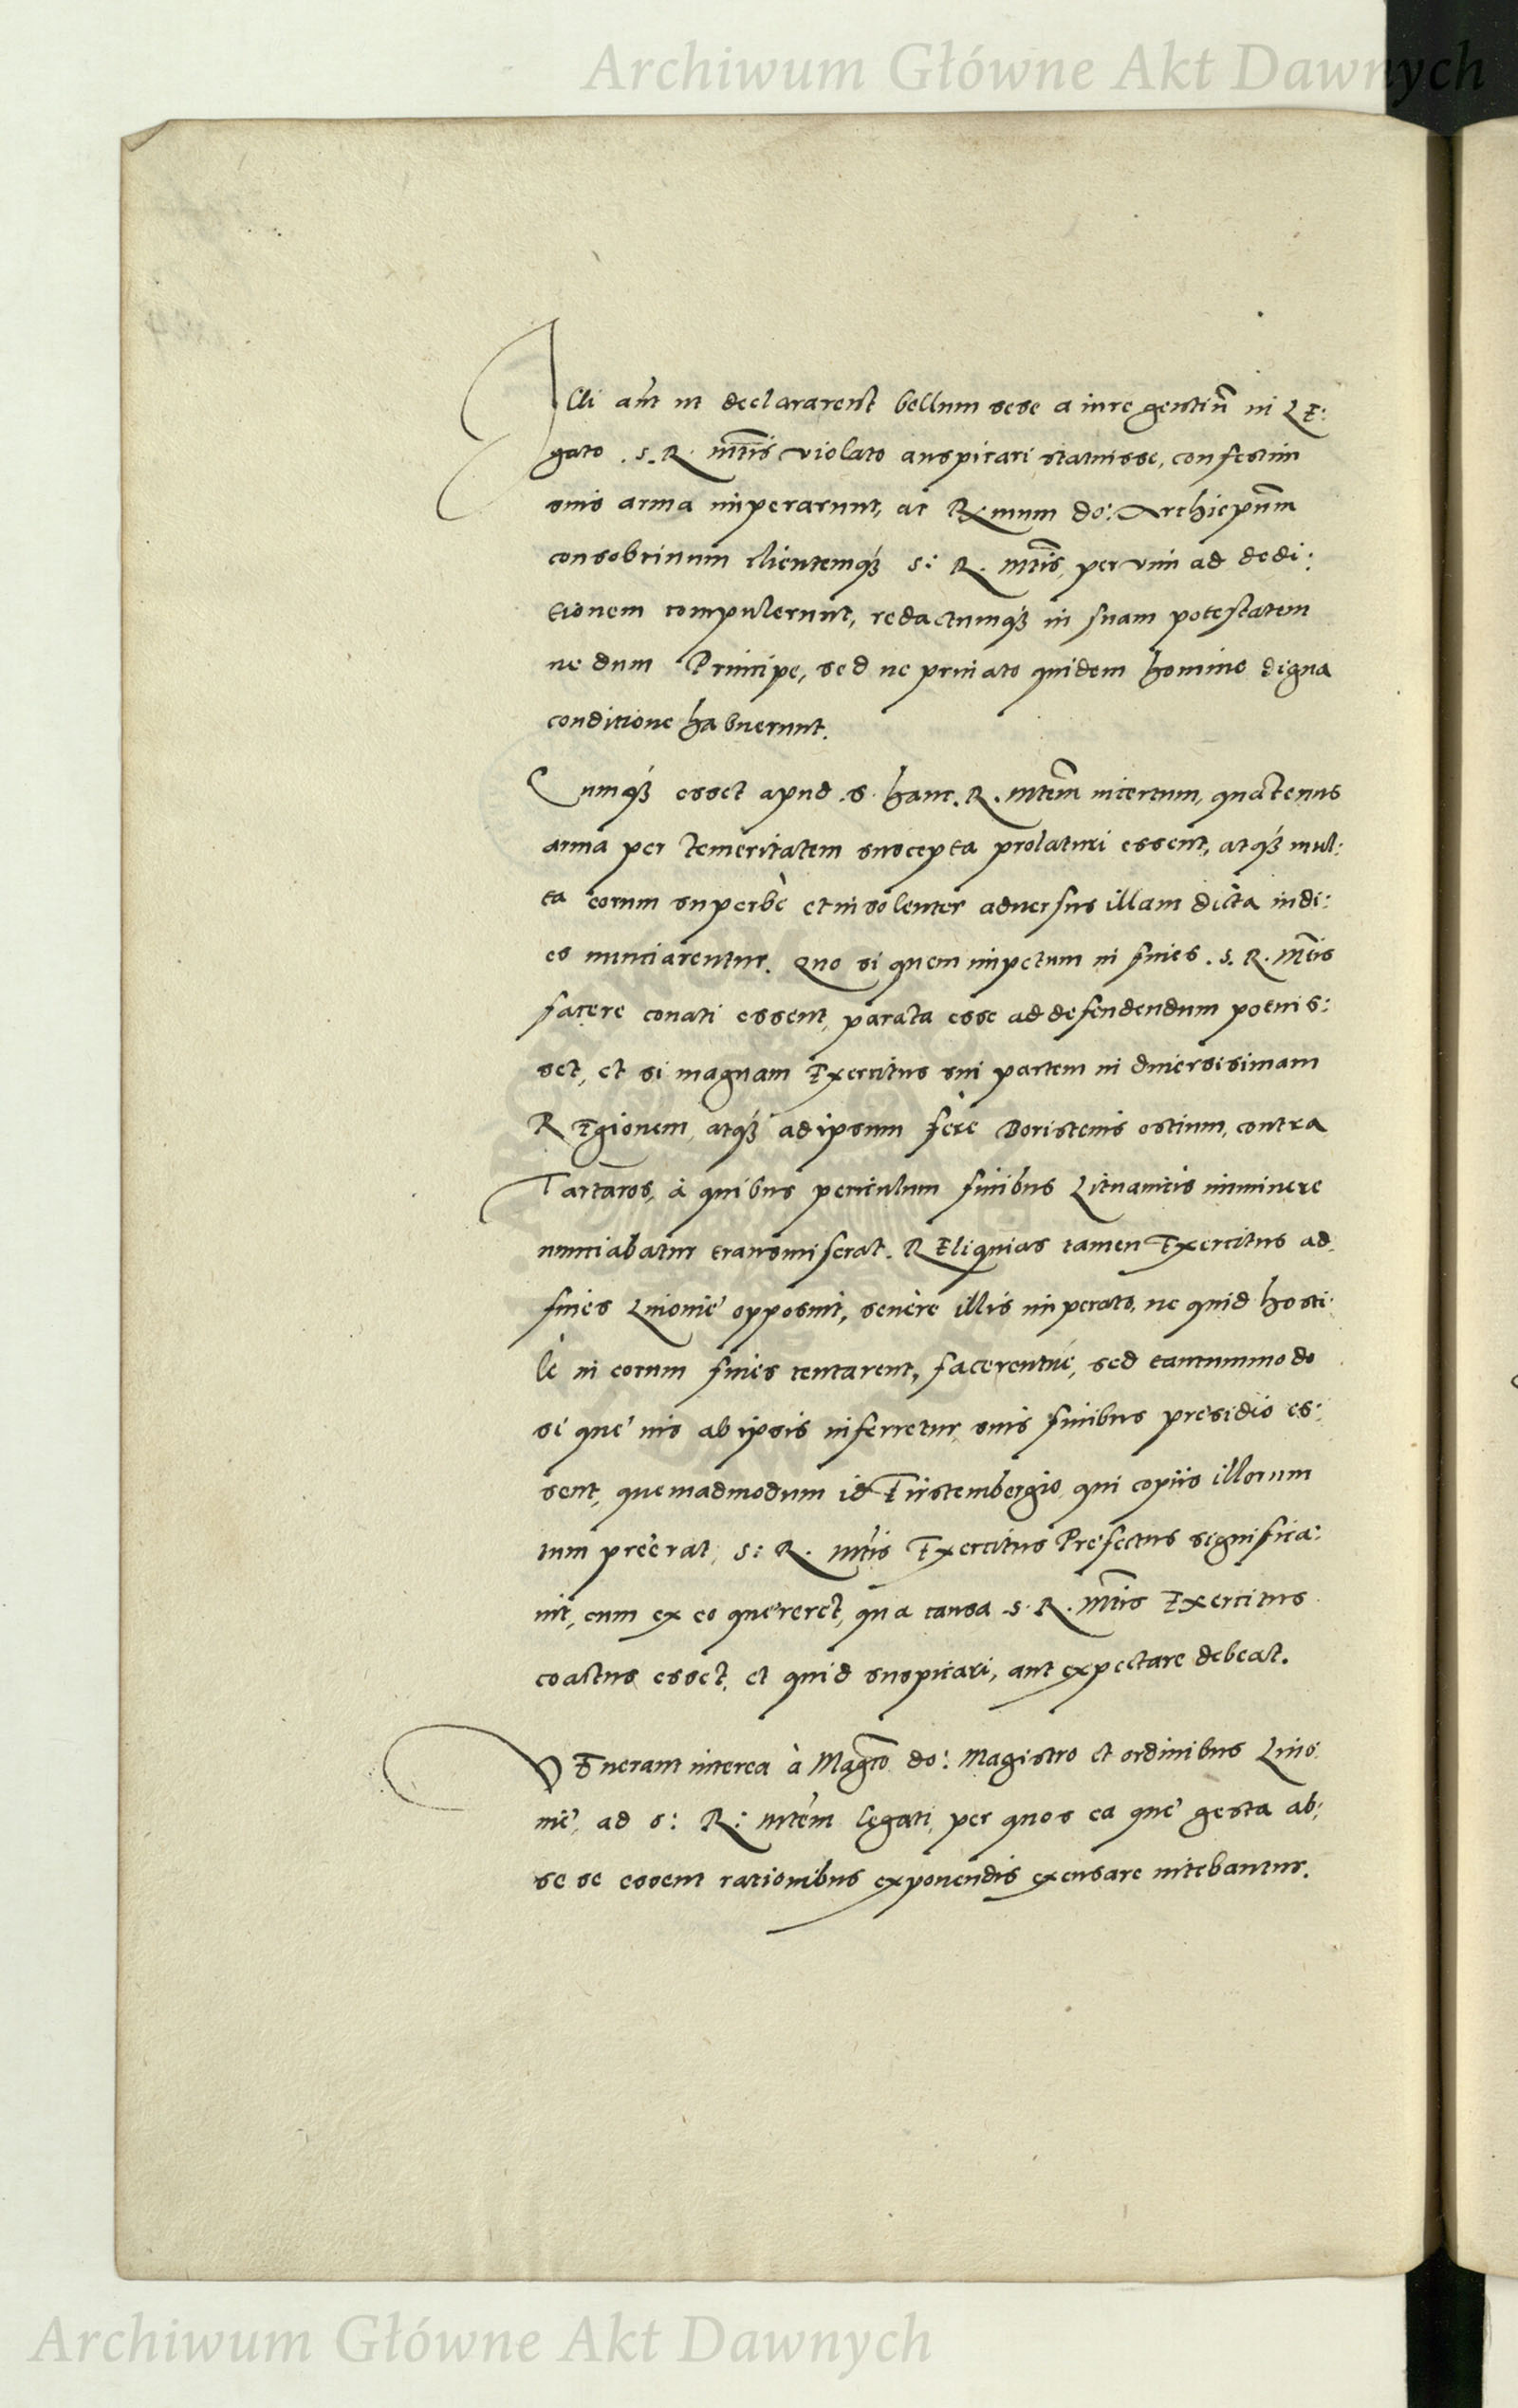 Archiwum Główne Akt Dawnych
Illi aut̃ ut declararent bellum sese a iure gentiũ in LE:
gato .S. R. mt̃is violato auspicari statuisse, confestim
suis arma imperarunt, ac Rx̃mum do: Archiepũm
consobrinum clientemq́ꝫ S: R. Mt̃is, per vim ad dedi:
tionem compulerunt, redactumq́ꝫ in suam potestatem
ne dum Principe, sed ne priuato quidem homine digna
conditione habuerunt.
Cumq́ꝫ esset apud .S. hanc. R. Mtẽm incertum, quatenus
arma per temeritatem suscepta prolaturi essent, atq́ꝫ mul:
ta eorum superbè et insolenter aduersus illam dicta indi:
es nunciarentur. Quo si quem impetum in fines .S. R. Mt̃is
facere conati essent, parata esse ad defendendum potuis:
set, et si magnam Exercitus sui partem in diuersissimam
REgionem, atq́ꝫ ad ipsum ferè Boristenis ostium, contra
Tartaros, à quibus periculum finibus Lituanicis imminere
nunciabatur transmiserat. REliquias tamen Exercitus ad
fines Liuonię opposuit, seuère illis imperato, ne quid hosti:
lè in eorum fines tentarent, facerentuè, sed tantummodo
si quę uis ab ipsis inferretur, suis finibus presidio es:
sent, quemadmodum id Firstembergio, qui copiis illorum
tum preerat, S: R. mt̃is Exercitus Prefectus significa:
uit, cum ex eo quęreret, qua causa .S. R. Mt̃is Exercitus
coactus esset, et quid suspicari, aut expectare debeat.
VEnerant interea à Mag̃co do: Magistro et ordinibus Liuo:
nię, ad S: R: mtẽm legati, per quos ea quę gesta ab:
se se essent rationibus exponendis excusare nitebantur.
Archiwum Główne Akt Dawnych